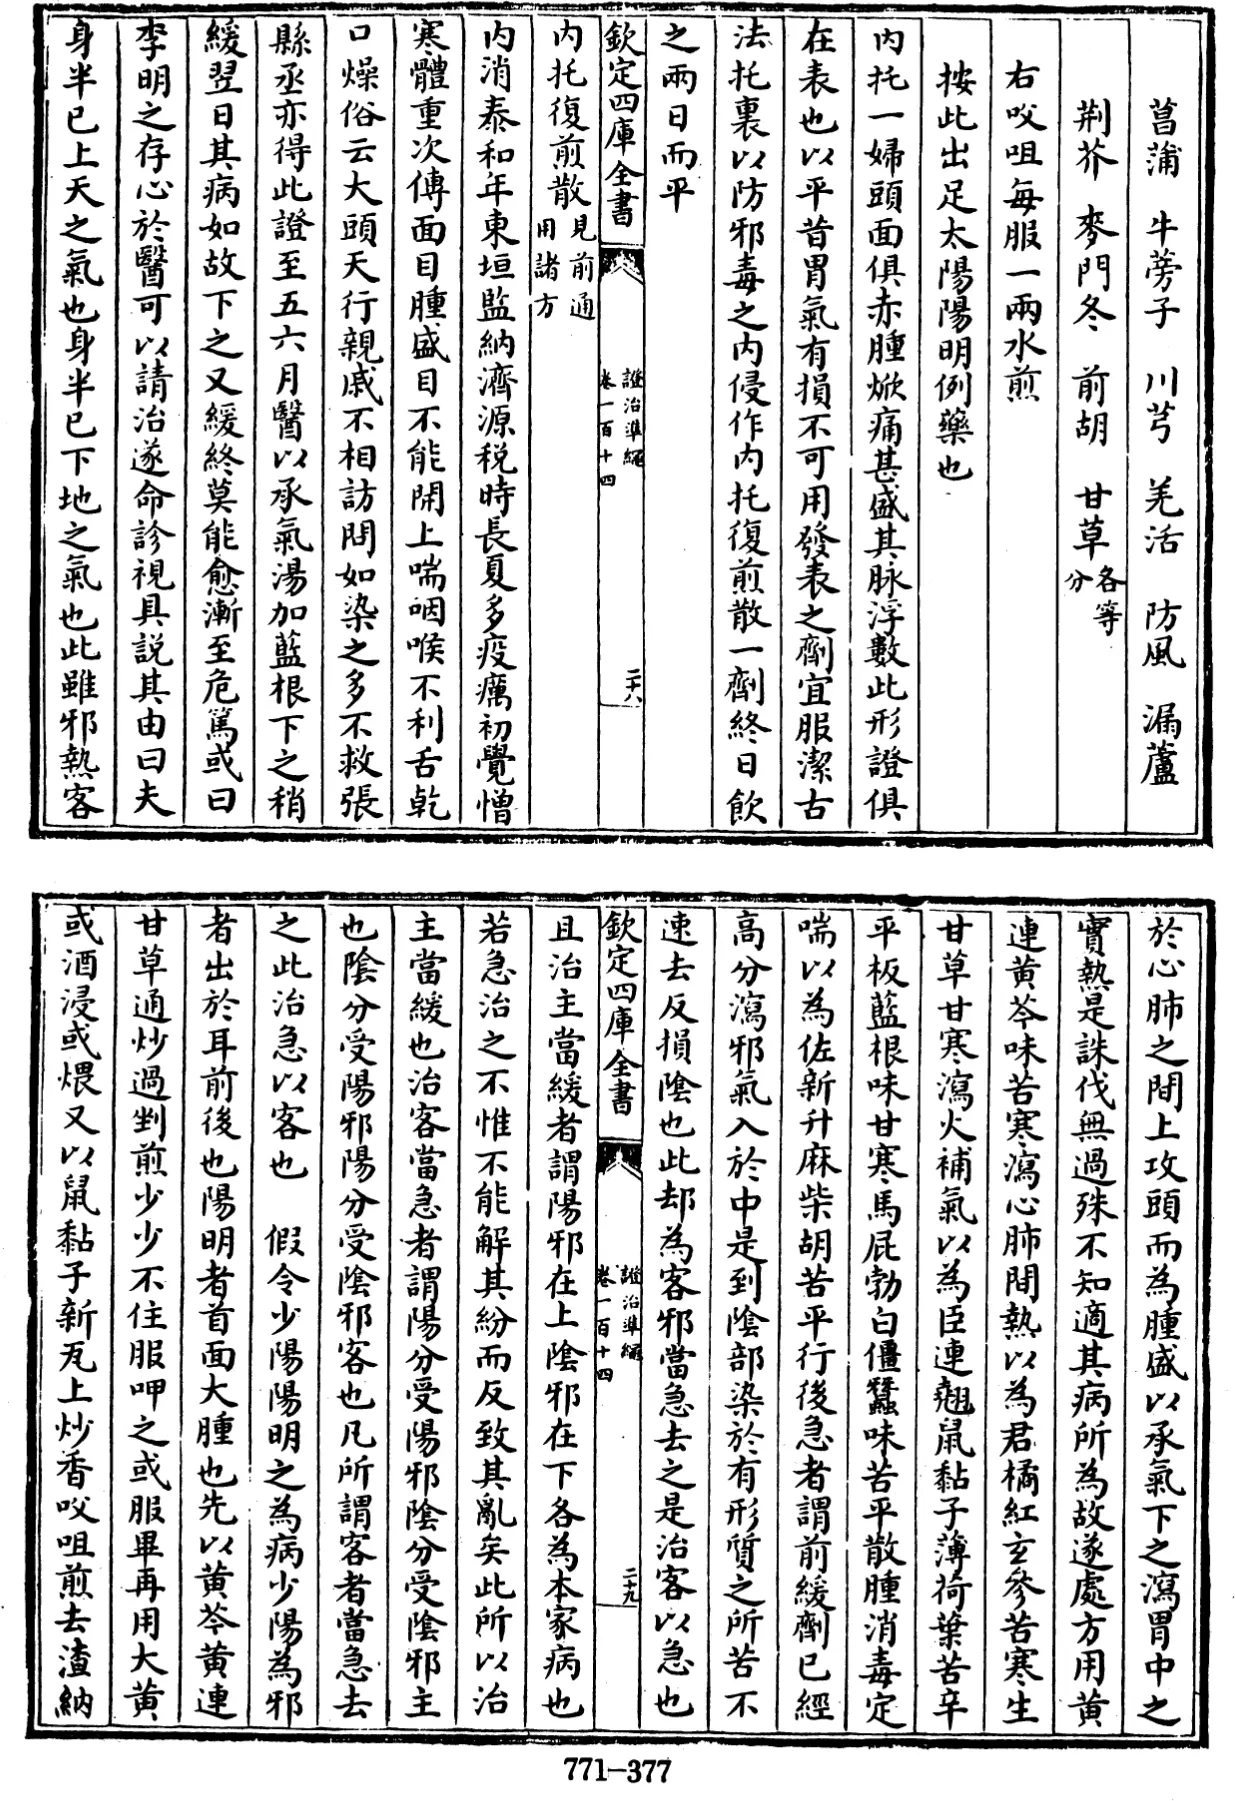 菖蒲 牛蒡子 川芎 羌活 防風 漏蘆
荆芥 麥門冬 前胡 甘草各等分
右㕮咀每服一兩水煎
按此出足太陽陽明例藥也
内托一婦頭面俱赤腫焮痛甚盛其脉浮數此形證俱
在表也以平昔胃氣有損不可用發表之劑宜服潔古
法托裏以防邪毒之内侵作内托復煎散一劑終日飲
之兩日而平
欽定四庫全書
證治準繩
卷一百十四
二十八
内托復煎散見前通用諸方
内消泰和年東垣監納濟源税時長夏多疫癘初覺憎
寒體重次傳面目腫盛目不能開上喘咽喉不利舌乾
口燥俗云大頭天行親戚不相訪問如染之多不救張
縣丞亦得此證至五六月醫以承氣湯加藍根下之稍
緩翌日其病如故下之又緩終莫能愈漸至危篤或曰
李明之存心於醫可以請治遂命診視具説其由曰夫
身半已上天之氣也身半已下地之氣也此雖邪熱客
於心肺之間上攻頭而為腫盛以承氣下之瀉胃中之
實熱是誅伐無過殊不知適其病所為故遂處方用黄
連黄芩味苦寒瀉心肺間熱以為君橘紅玄參苦寒生
甘草甘寒瀉火補氣以為臣連翹鼠黏子薄荷葉苦辛
平板藍根味甘寒馬屁勃白僵蠶味苦平散腫消毒定
喘以為佐新升麻柴胡苦平行後急者謂前緩劑已經
高分瀉邪氣入於中是到陰部染於有形質之所苦不
速去反損陰也此却為客邪當急去之是治客以急也
欽定四庫全書
證治準繩
卷一百十四
二十九
且治主當緩者謂陽邪在上陰邪在下各為本家病也
若急治之不惟不能解其紛而反致其亂矣此所以治
主當緩也治客當急者謂陽分受陽邪陰分受陰邪主
也陰分受陽邪陽分受陰邪客也凡所謂客者當急去
之此治急以客也 假令少陽陽明之為病少陽為邪
者出於耳前後也陽明者首面大腫也先以黄芩黄連
甘草通炒過剉煎少少不住服呷之或服畢再用大黄
或酒浸或煨又以鼠黏子新瓦上炒香㕮咀煎去渣納
771-377